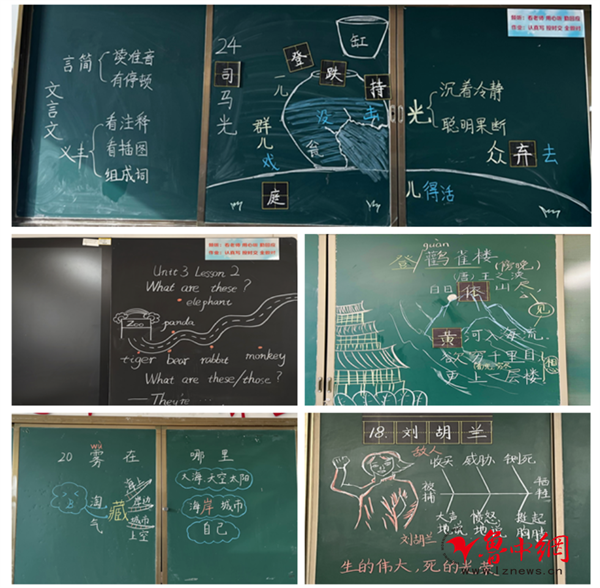 文言文
言简
读准音
有停顿
义丰
看注释
看插图
组成词
24
司马光
群儿戏
庭
一儿
登
跌
持
缸
没
击
瓮
光
沉着冷静
聪明果断
众弃去
儿得活
Unit 3 Lesson 2
What are these?
elephant
Zoo
panda
tiger bear rabbit monkey
What are these/those?
— They're
guàn
登鹳雀楼
(唐) 王之涣
白日依山尽
黄河入海流
欲穷千里目
更上一层楼
见
wù
20 雾在哪里
淘气
藏
海上
岸边
城市
上空
大海 天空 太阳
海岸 城市
自己
18. 刘胡兰
敌人
收买 威胁
被捕
牺牲
大声地说
愤怒地说
挺起胸膛
刘胡兰
生的伟大，死的光荣
鲁中網
www.lznews.cn